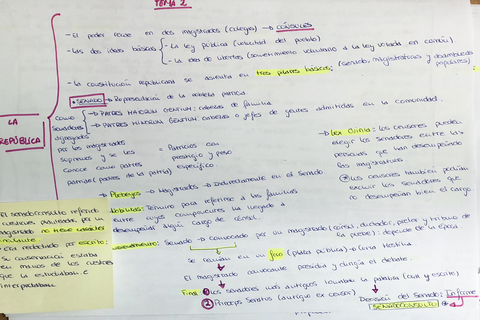 TEMA 2
LA REPÚBLICA
- El poder reside en dos magistrados (colegas) → CÓNSULES
- Las dos ideas básicas
- La ley pública (voluntad del pueblo)
- La idea de libertas (sometimiento voluntario a la ley votada en común).
- La constitución republicana se asienta en tres pilares básicos: (senado, magistraturas y asambleas populares)
• SENADO → Representación de la nobleza patricia
→ PATRES MAIORUM GENTIUM: cabezas de familia
→ PATRES MINORUM GENTIUM: cabezas o jefes de gentes admitidas en la comunidad.
como senadores
por los magistrados
supremos y se les
conoce como patres
patricii (padres de la patria)
= Patricios con
prestigio y peso
específico.
→ Lex Ovinia: los censores pueden
elegir los senadores entre las
personas que han desempeñado
las magistraturas
los censores también podían
excluir los senadores que
no desempeñan bien el cargo
→ Plebeyos → Magistrados → Indirectamente en el Senado
Nobilitas: Término para referirse a las familias
cuyos componentes ha llegado a
desempeñar algún cargo de cónsul.
Senado → convocado por un magistrado (cónsul, dictador, pretor y tribuno de la plebe): depende de la época
se reunían en un foro (plaza pública) → Curia Hostilia
El magistrado convocante presidía y dirigía el debate.
① Los senadores más antiguos tomaban la palabra (oral y escrito)
② Princeps Senatus (antiguo ex censor)
Decisión del Senado: Informe
SENADOCONSULTO
El senadoconsulto referido
cuestiones planteadas por un
magistrado no tiene carácter
vinculante
Era redactado por escrito
Su conservación estaba
en manos de los cuestores
que la estudiaban e
interpretaban